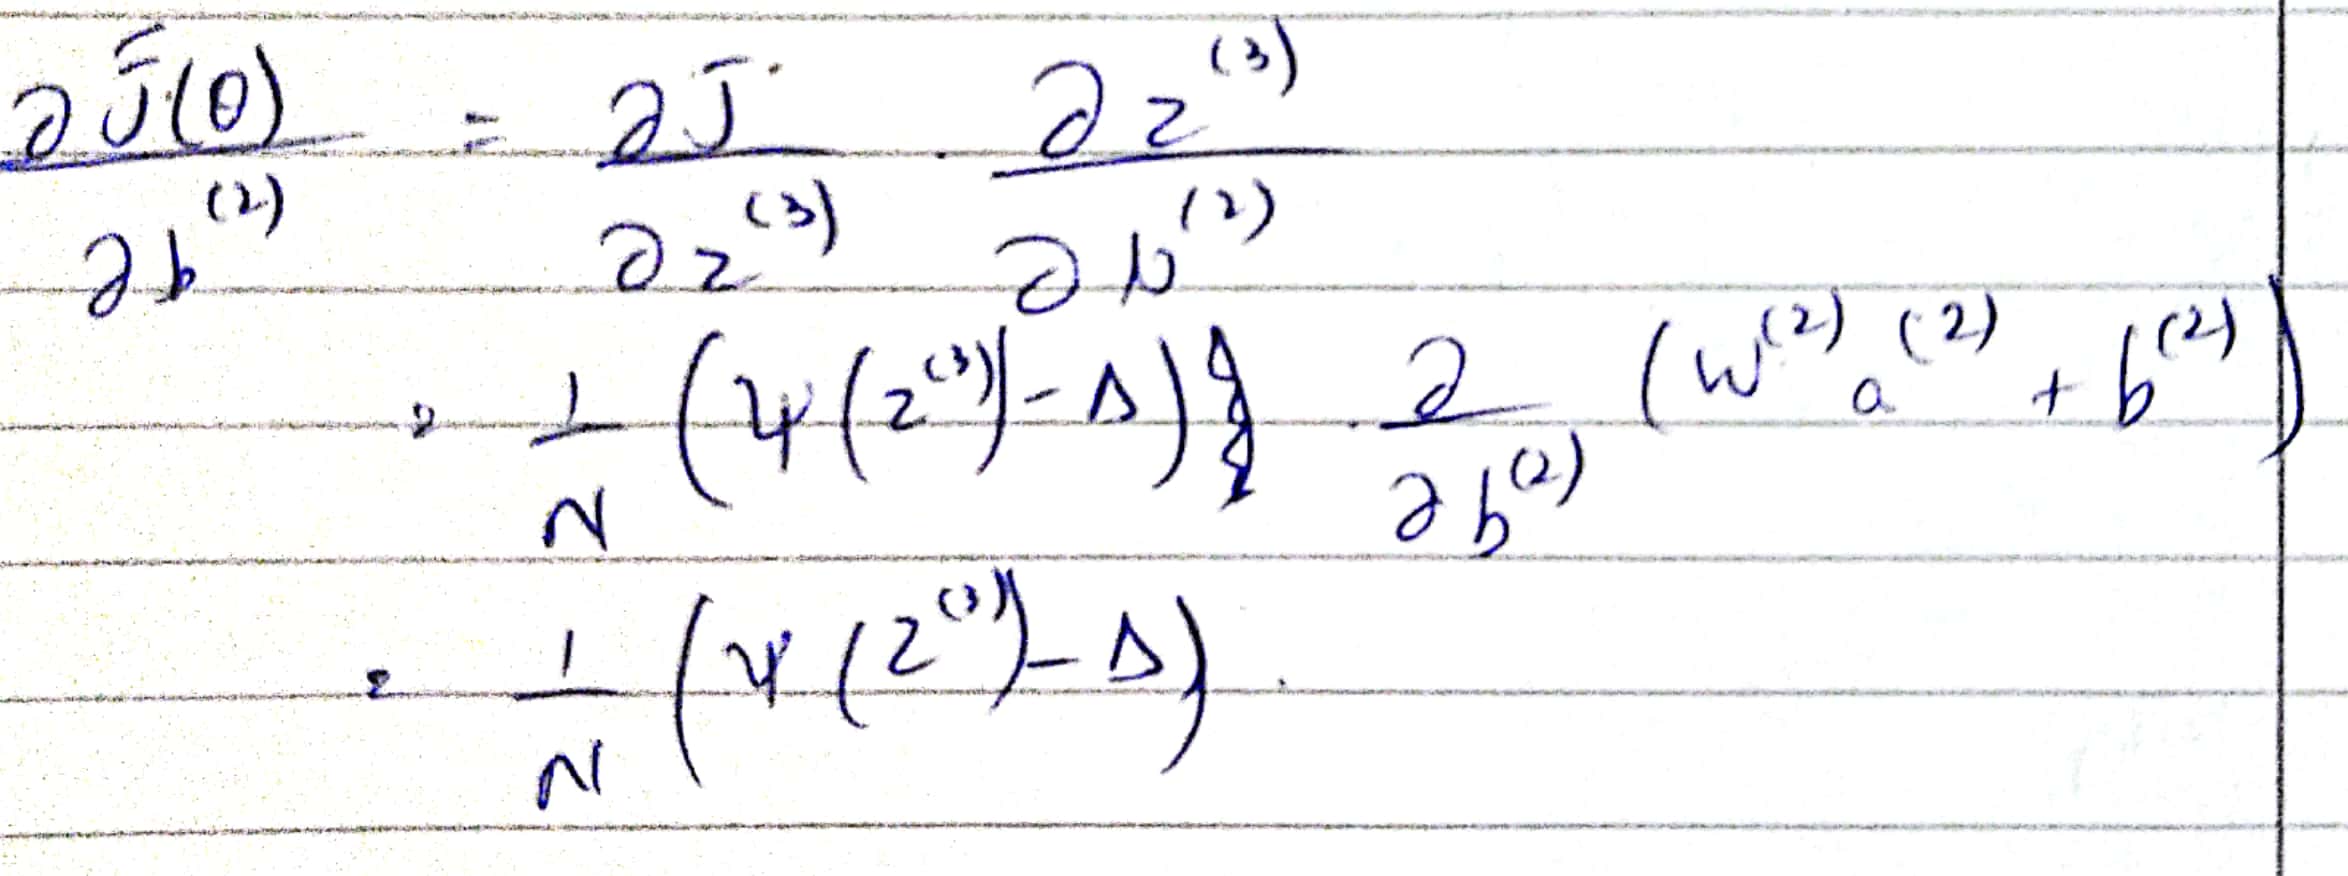 ∂J̃(θ)/∂b^(2) = ∂J̃/∂z^(3) · ∂z^(3)/∂b^(2)
= 1/N (ψ(z^(3)) - Δ) · ∂/∂b^(2) (W^(2) a^(2) + b^(2))
= 1/N (ψ(z^(3)) - Δ).